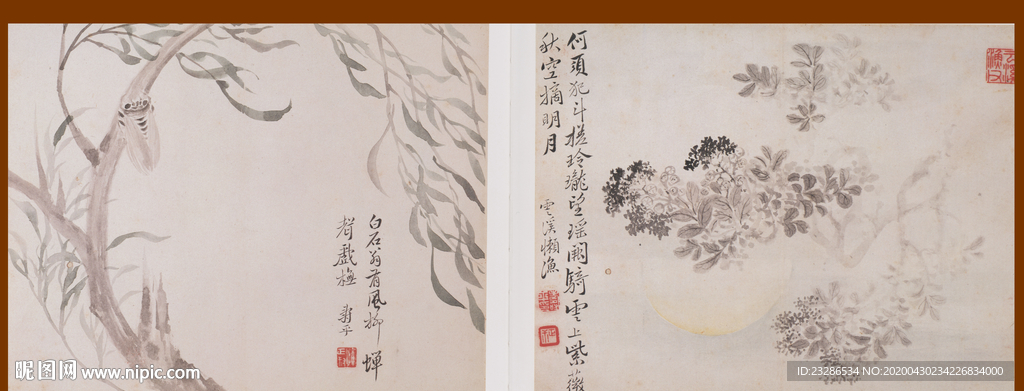 何須犯斗槎玲瓏望瑤闕騎雲上紫薇
秋空摘明月
雲溪懶漁
白石翁有風柳蟬
聲戲橅
壽平
昵图网
www.nipic.com
ID:23286534 NO:20200430234226834000